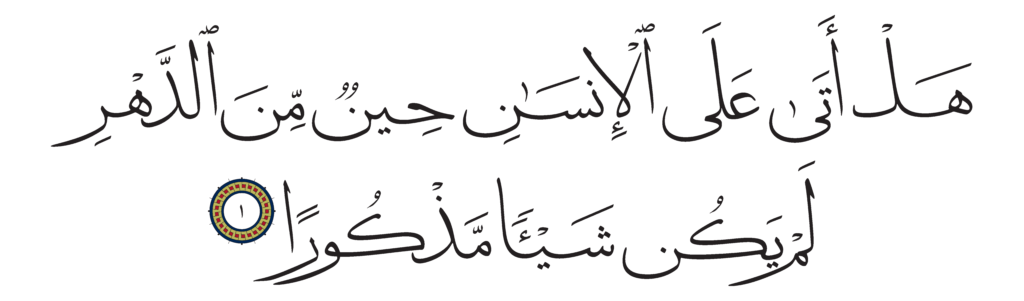 هَلْ أَتَىٰ عَلَى ٱلْإِنسَـٰنِ حِينٌ مِّنَ ٱلدَّهْرِ
لَمْ يَكُن شَيْـًٔا مَّذْكُورًا ١